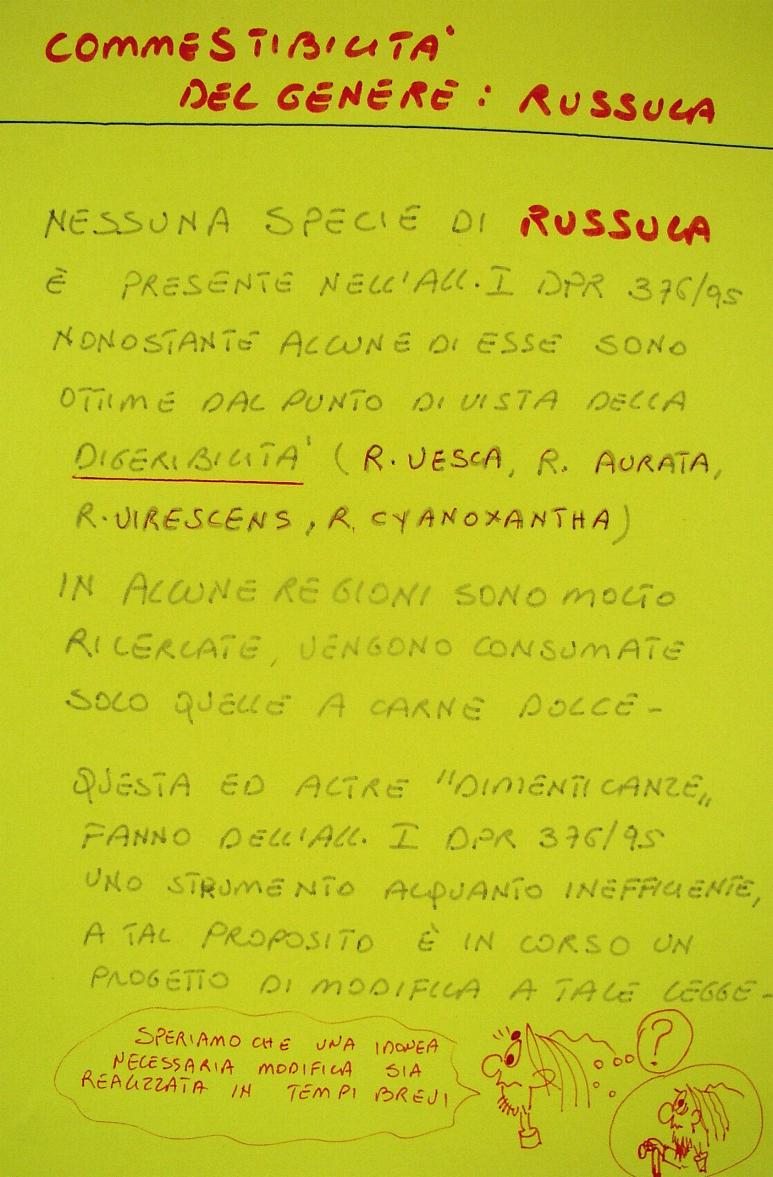 COMMESTIBILITA'
DEL GENERE : RUSSULA
NESSUNA SPECIE DI RUSSULA
È PRESENTE NELL'ALL. I DPR 376/95
NONOSTANTE ALCUNE DI ESSE SONO
OTTIME DAL PUNTO DI VISTA DELLA
DIGERIBILITA' (R. VESCA, R. AURATA,
R. VIRESCENS, R. CYANOXANTHA)
IN ALCUNE REGIONI SONO MOLTO
RICERCATE, VENGONO CONSUMATE
SOLO QUELLE A CARNE DOLCE -
QUESTA ED ALTRE "DIMENTICANZE„
FANNO DELL'ALL. I DPR 376/95
UNO STRUMENTO ALQUANTO INEFFICIENTE,
A TAL PROPOSITO È IN CORSO UN
PROGETTO DI MODIFICA A TALE LEGGE -
SPERIAMO CHE UNA IDONEA
NECESSARIA MODIFICA SIA
REALIZZATA IN TEMPI BREVI
?